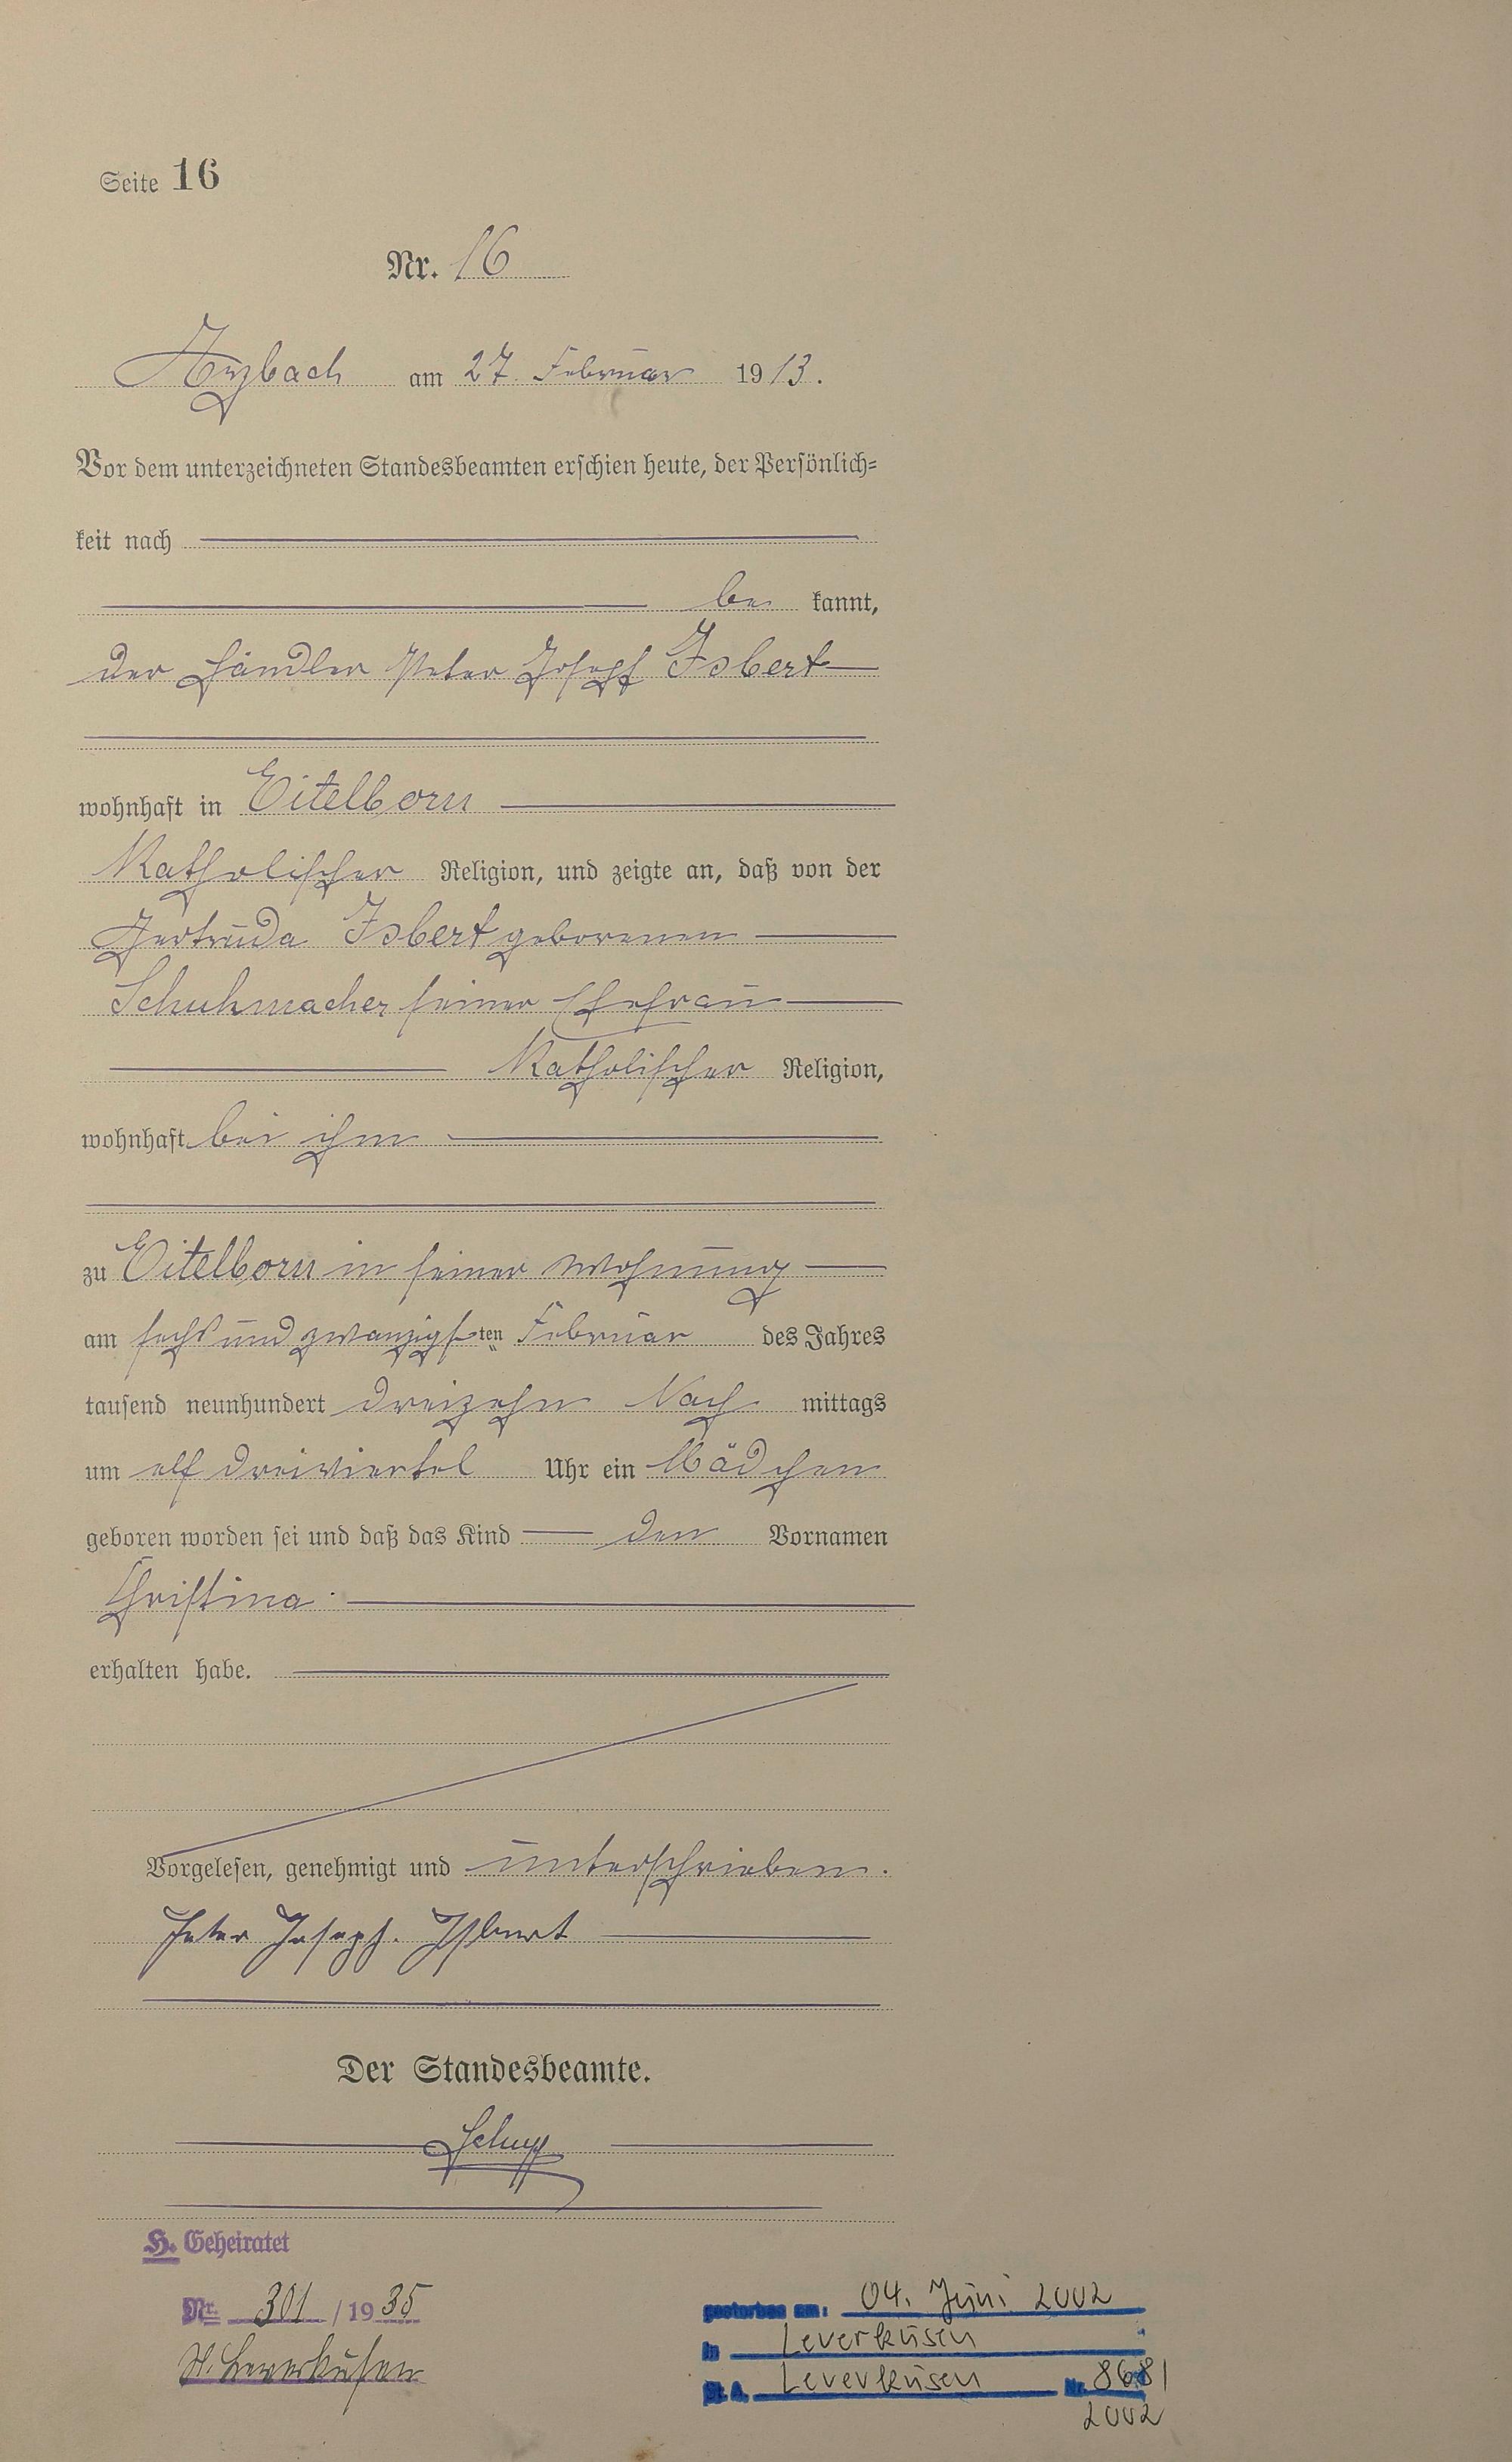 Seite 16
Nr. 16
Arzbach am 27. Februar 1913.
Vor dem unterzeichneten Standesbeamten erschien heute, der Persönlich=
keit nach
be kannt,
der Händler Peter Josef Isbert
wohnhaft in Eitelborn
Katholischer Religion, und zeigte an, daß von der
Gertruda Isbert geborenen
Schuhmacher seiner Ehefrau
Katholischer Religion,
wohnhaft bei ihm
zu Eitelborn in seiner Wohnung
am sechs und zwanzigsten Februar des Jahres
tausend neunhundert dreizehn Nach mittags
um elf dreiviertel Uhr ein Mädchen
geboren worden sei und daß das Kind den Vornamen
Christina
erhalten habe.
Vorgelesen, genehmigt und unterschrieben.
Peter Joseph. Isbert
Der Standesbeamte.
H. Geheiratet
Nr. 301 / 1935
St. Leverkusen
gestorben am: 04. Juni 2002
in Leverkusen
St. A. Leverkusen Nr. 868/
2002